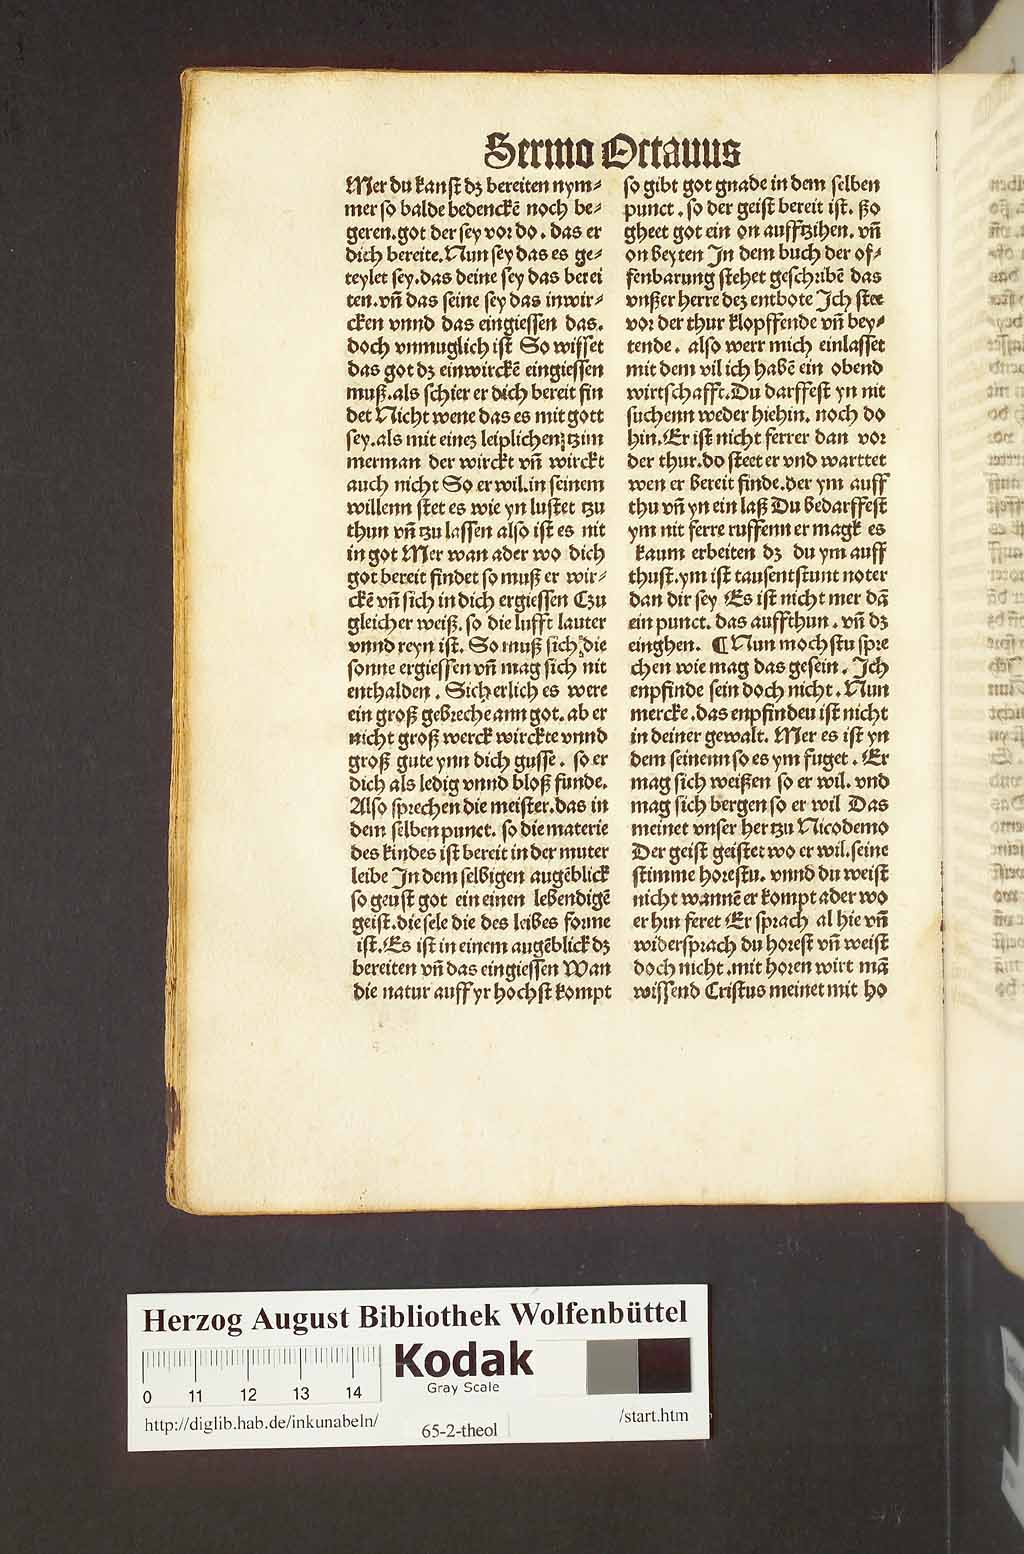 Sermo Octauus
Mer du kanst dz bereiten nym⸗
mer so balde bedenckē noch be⸗
geren.got der sey vor do. das er
dich bereite.Nun sey das es ge⸗
teylet sey.das deine sey das berei
ten.vn̄ das seine sey das inwir⸗
cken vnnd das eingiessen das.
doch vnmuglich ist So wisset
das got dz einwirckē eingiessen
muß.als schier er dich bereit fin
det Nicht wene das es mit gott
sey.als mit einez leiplichen tzim
merman der wirckt vn̄ wirckt
auch nicht So er wil.in seinem
willenn stet es wie yn lustet tzu
thun vn̄ tzu lassen also ist es nit
in got Mer wan ader wo dich
got bereit findet so muß er wir⸗
ckē vn̄ sich in dich ergiessen Czu
gleicher weiß.so die lufft lauter
vnnd reyn ist. So muß sich die
sonne ergiessen vn̄ mag sich nit
enthalden. Sicherlich es were
ein groß gebreche ann got.ab er
nicht groß werck wirckte vnnd
groß gute ynn dich gusse. so er
dich als ledig vnnd bloß funde.
Also sprechen die meister.das in
dem selben punct. so die materie
des kindes ist bereit in der muter
leibe In dem selbigen augēblick
so geust got ein einen lebendigē
geist.die sele die des leibes forme
ist.Es ist in einem augēblick dz
bereiten vn̄ das eingiessen Wan
die natur auff yr hochst kompt
so gibt got gnade in dem selben
punct. so der geist bereit ist. ßo
gheet got ein on aufftzihen. vn̄
on beyten In dem buch der of⸗
fenbarung stehet geschribē das
vnßer herre dez entbote Ich stee
vor der thur klopffende vn̄ bey⸗
tende. also werr mich einlasset
mit dem vil ich habē ein obend
wirtschafft.Du darffest yn nit
suchenn weder hiehin. noch do
hin.Er ist nicht ferrer dan vor
der thur.do steet er vnd warttet
wen er bereit finde.der ym auff
thu vn̄ yn ein laß Du bedarffest
ym nit ferre ruffenn er magk es
kaum erbeiten dz du ym auff
thust.ym ist tausentstunt noter
dan dir sey Es ist nicht mer dā
ein punct. das auffthun. vn̄ dz
einghen. ¶ Nun mochstu spre
chen wie mag das gesein. Ich
enpfinde sein doch nicht. Nun
mercke.das enpfinden ist nicht
in deiner gewalt. Mer es ist yn
dem seinenn so es ym fuget. Er
mag sich weißen so er wil. vnd
mag sich bergen so er wil Das
meinet vnser her tzu Nicodemo
Der geist geistet wo er wil.seine
stimme horestu. vnnd du weist
nicht wannē er kompt ader wo
er hin feret Er sprach al hie vn̄
widersprach du horest vn̄ weist
doch nicht.mit horen wirt mā
wissend Cristus meinet mit ho
Herzog August Bibliothek Wolfenbüttel
Kodak
Gray Scale
0 11 12 13 14
http://diglib.hab.de/inkunabeln/
65-2-theol
/start.htm